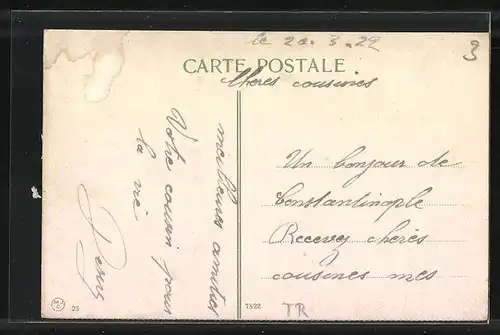 le 20. 3. 22
3
CARTE POSTALE
Chères cousines
Un bonjour de
Constantinople
Recevez chères
cousines mes
meilleures amitiés
Votre cousin pour
la vie
23
7522
TR